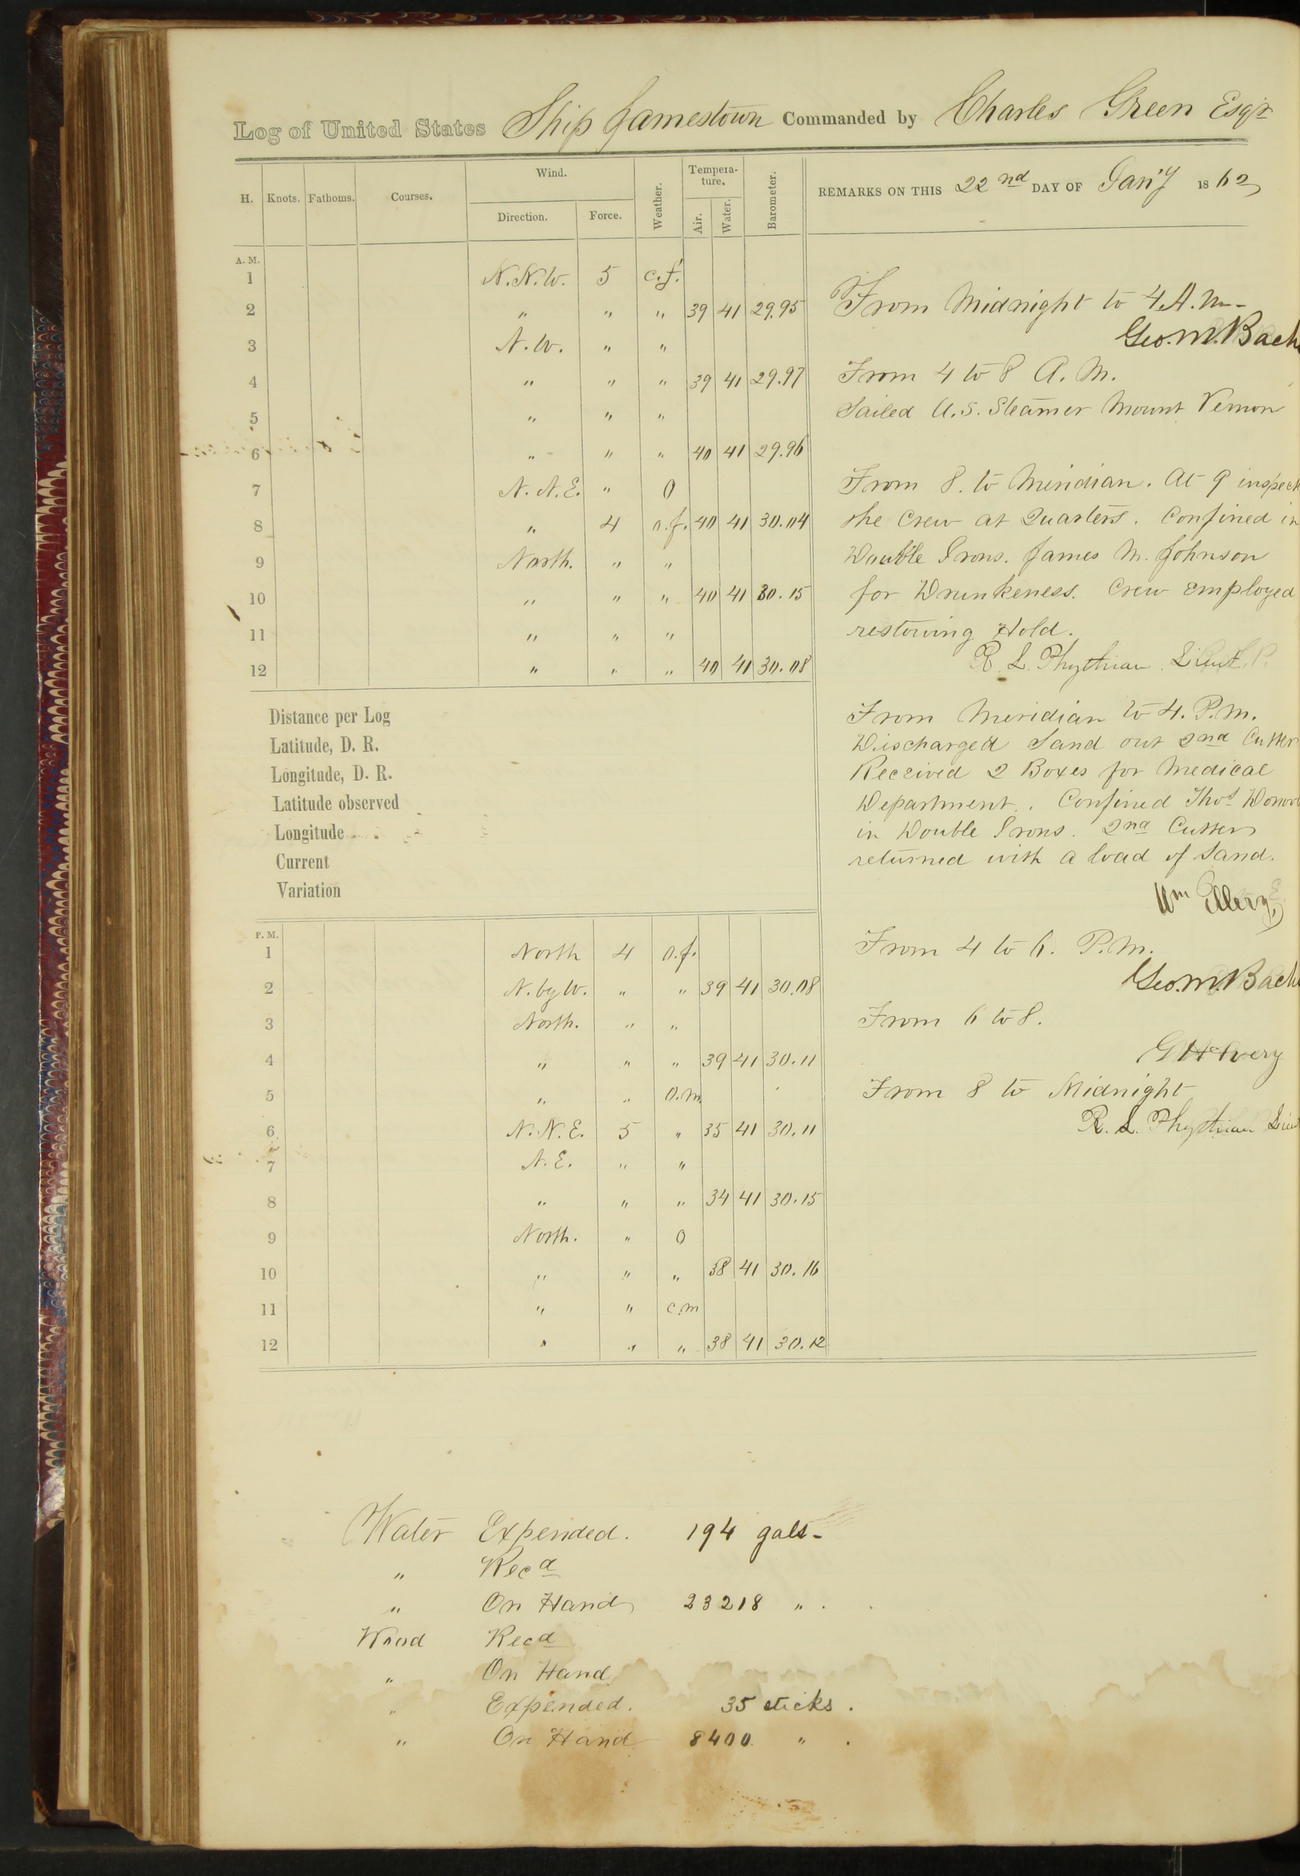 Log of United States Ship Jamestown Commanded by Charles Green Esqr
H. Knots. Fathoms. Courses. Wind. Direction. Force. Weather. Temperature. Air. Water. Barometer. REMARKS ON THIS 22nd DAY OF Jan'y 1862
A. M.
1 N.N.W. 5 c.f.
2 " " " 39 41 29.95
3 N.W. " "
4 " " " 39 41 29.97
5 " " "
6 " " " 40 41 29.96
7 N.N.E. " O
8 " 4 o.f. 40 41 30.04
9 North. " "
10 " " " 40 41 30.15
11 " " "
12 " " " 40 41 30.08
From Midnight to 4 A.M.
Geo. M. Bach
From 4 to 8 A.M.
Sailed U.S. Steamer Mount Vernon
From 8. to Meridian. At 9 inspec
the Crew at Quarters. Confined in
Double Irons. James M. Johnson
for Drunkeness. Crew employed
restowing Hold.
R. L. Phythian Lieut
Distance per Log
Latitude, D. R.
Longitude, D. R.
Latitude observed
Longitude
Current
Variation
From Meridian to 4. P.M.
Discharged Sand out 2nd Cutter
Received 2 Boxes for Medical
Department. Confined Thos
in Double Irons. 2nd Cutter
returned with a load of Sand.
Wm
P. M.
1 North 4 o.f.
2 N. by W. " " 39 41 30.08
3 North. " "
4 " " " 39 41 30.11
5 " " o.m
6 N.N.E. 5 " 35 41 30.11
7 N.E. " "
8 " " " 34 41 30.15
9 North. " O
10 " " " 38 41 30.16
11 " " c.m
12 " " " 38 41 30.12
From 4 to 6. P.M.
Geo. M. Bach
From 6 to 8.
From 8 to Midnight
R. L. Phythian Lieut
Water Expended. 194 gals-
" Recd
" On Hand 23218 " .
Wood Recd
" On Hand
" Expended. 35 sticks.
" On Hand 8400 " .